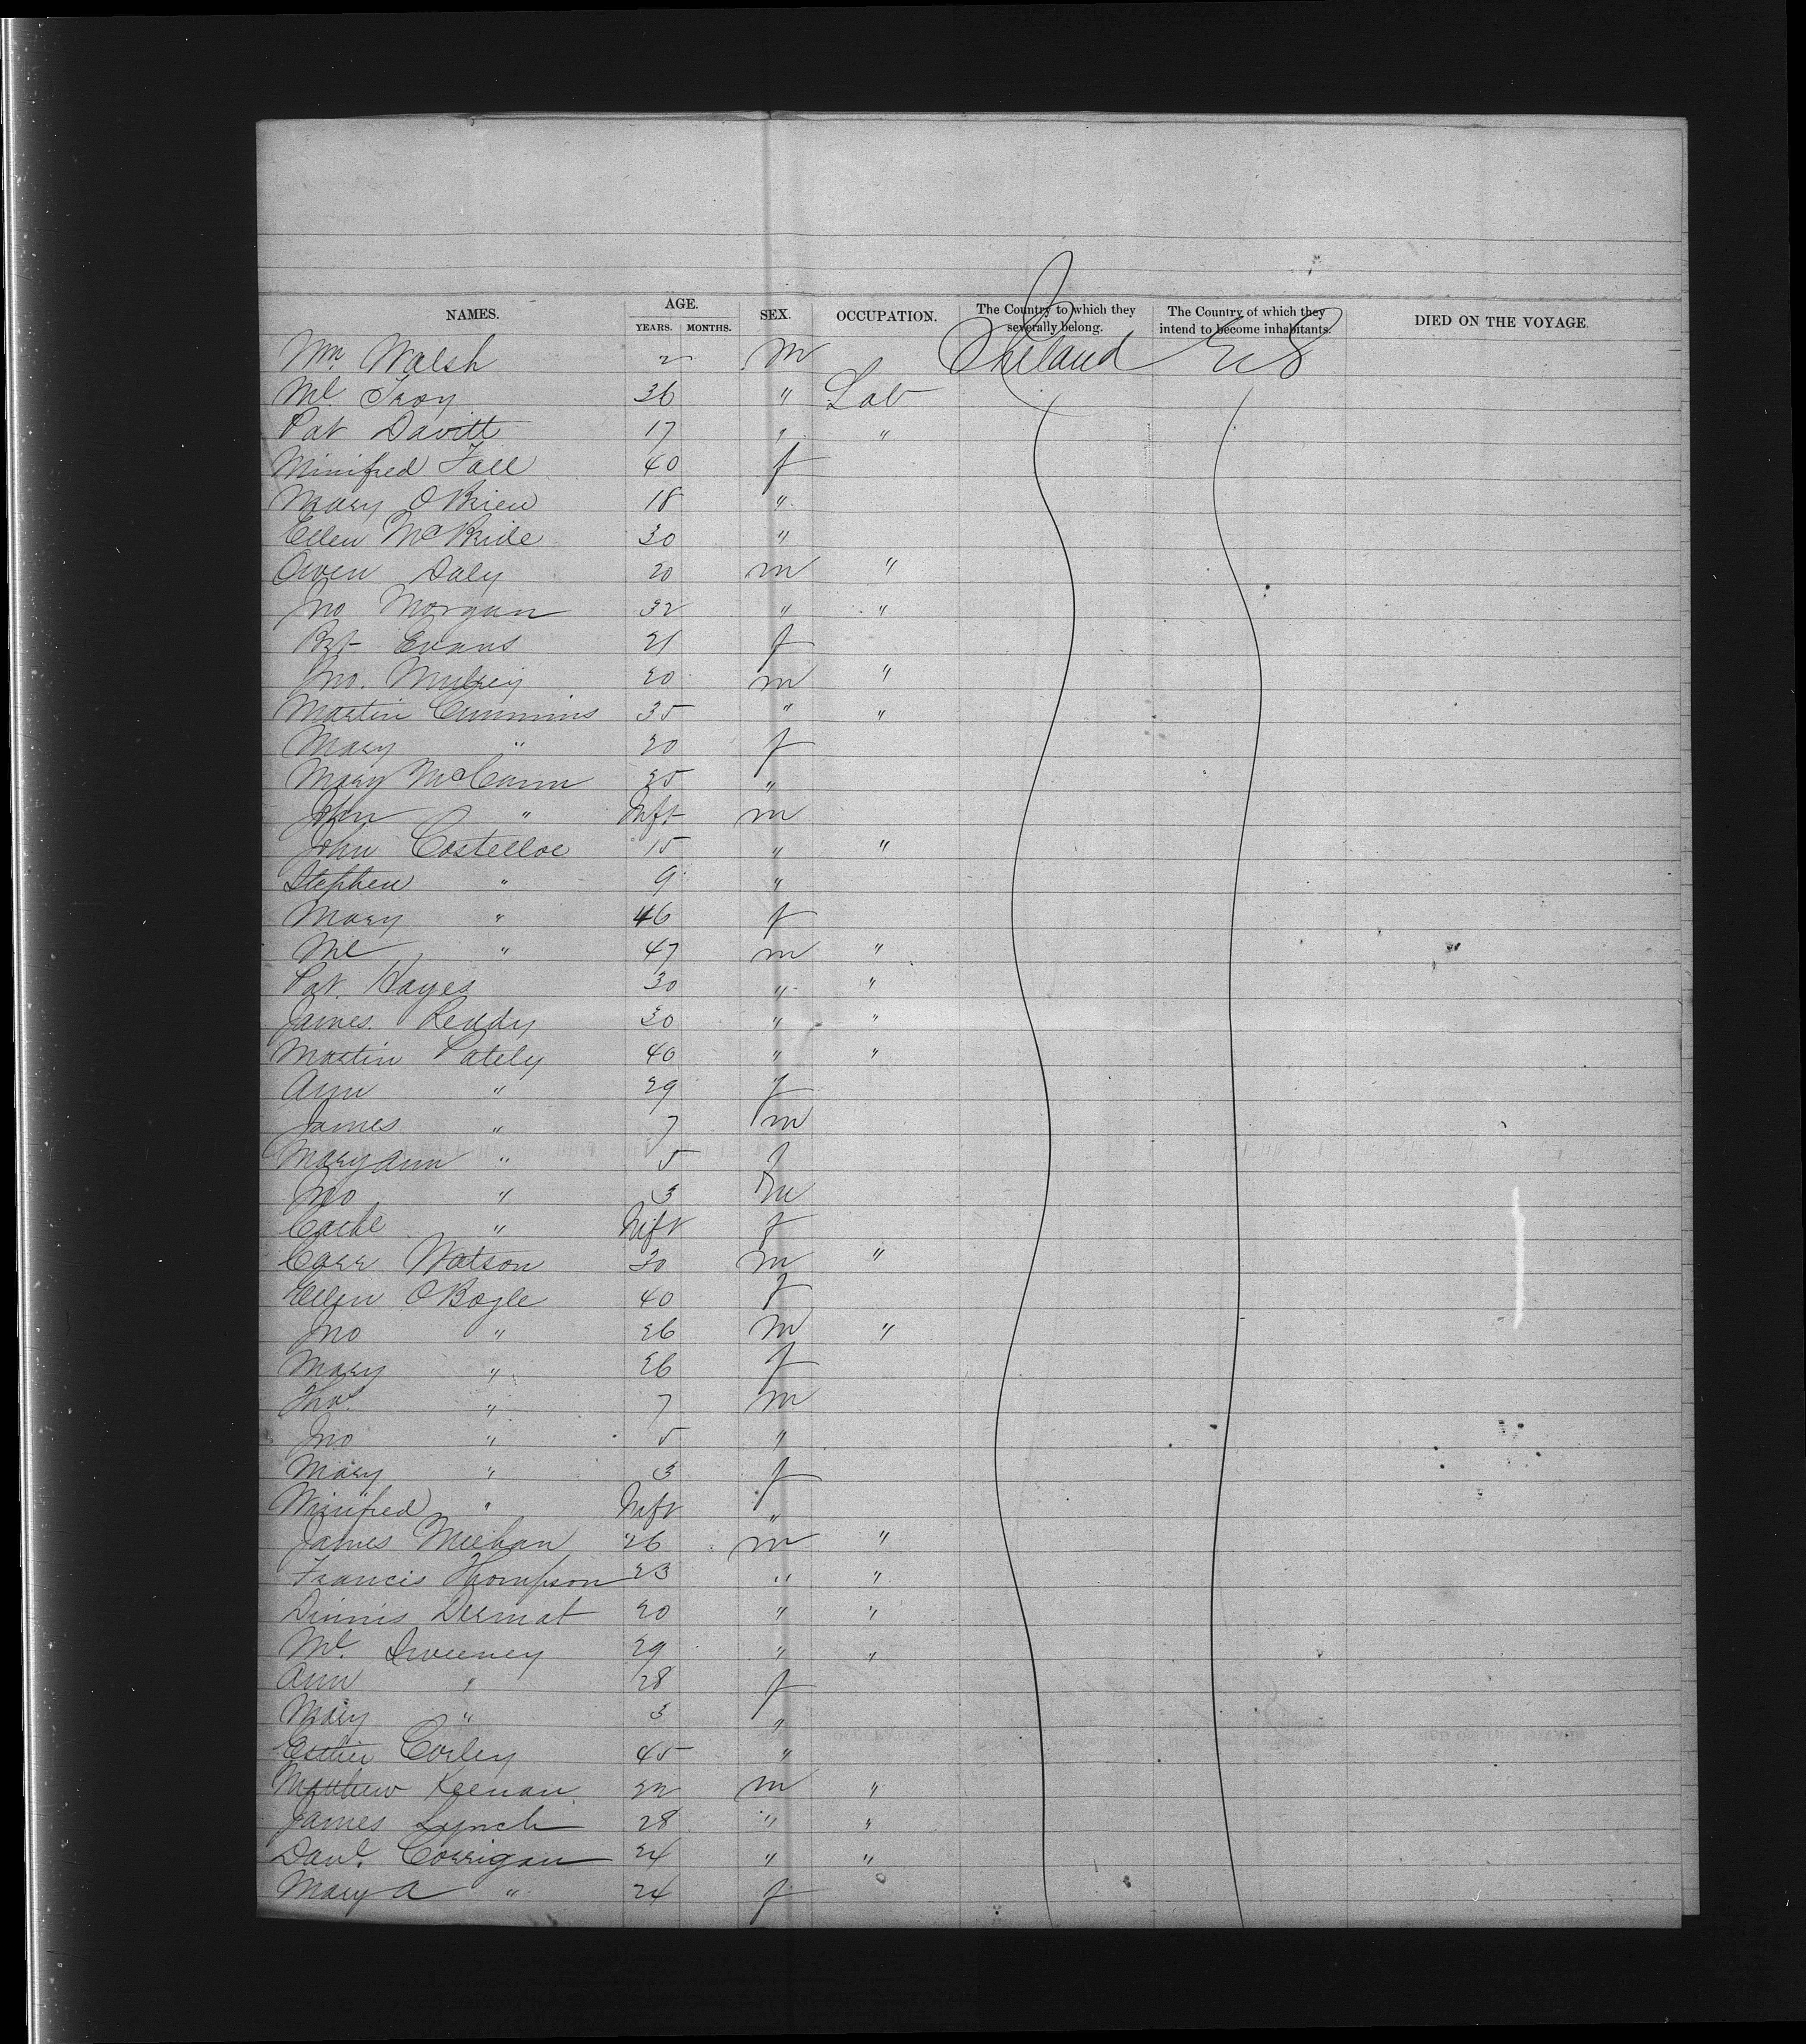 NAMES. AGE. YEARS. MONTHS. SEX. OCCUPATION. The Country to which they severally belong. The Country of which they intend to become inhabitants. DIED ON THE VOYAGE.
Wm. Walsh 2 m Ireland US
Ml. Troy 36 " Lab
Pat Davitt 17 " "
Winifred Fall 40 f
Mary OBrien 18 "
Ellen McBride 30 "
Owen Daly 20 m "
Jno Morgan 32 " "
Bgt Evans 21 f
Jno. 20 m "
Martin Cummins 35 " "
Mary " 20 f
Mary McCann 25 "
John " Inft m
John Costelloe 15 " "
Stephen " 9 "
Mary " 46 f
Ml " 47 m "
Pat. Hayes 30 " "
James Reddy 30 " "
Martin Pately 40 " "
Ann " 29 f
James " 7 m
Mary Ann " 5 f
Jno " 3 m
Cathe " Inft f
Carr Watson 30 m "
Ellen OBoyle 40 f
Jno " 26 m "
Mary " 26 f
Thos. " 7 m
Jno " 5 "
Mary " 3 f
Winifred " Inft "
James Meehan 26 m "
Francis Thompson 23 " "
Dinnis Dermat 20 " "
Ml. Sweeney 29 " "
Ann " 28 f
Mary " 3 "
Esther Corley 45 "
Matthew Keenan 22 m "
James Lynch 28 " "
Danl. Corrigan 24 " "
Mary A " 24 f